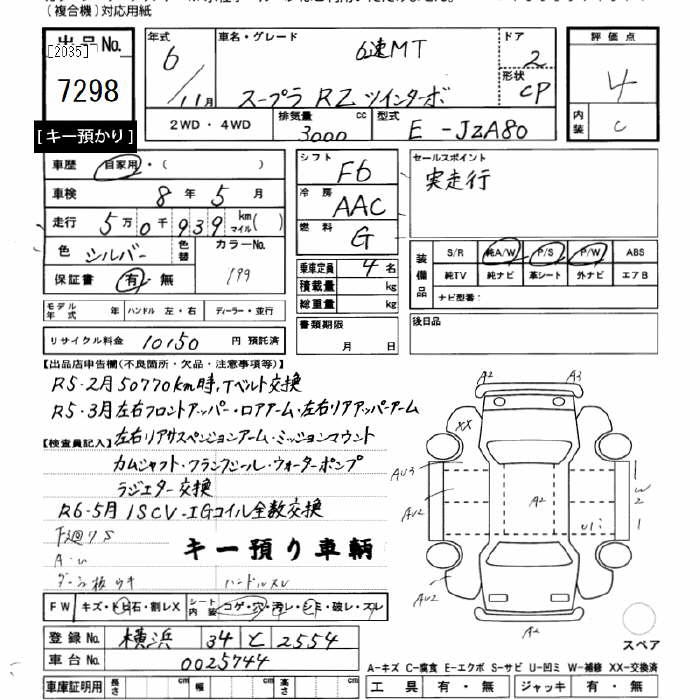 (複合機)対応用紙
出品No.
[2035]
7298
[キー預かり]
年式 6/11月
車名・グレード 6速MT
スープラ RZ ツインターボ
ドア 2
形状 CP
評価点 4
内装 C
2WD・4WD
排気量 3000 cc
型式 E-JZA80
車歴 自家用・( )
車検 8年5月
走行 5万0千939 km マイル( )
色 シルバー
色替
カラーNo. 199
保証書 有・無
シフト F6
冷房 AAC
燃料 G
乗車定員 4名
積載量 kg
総重量 kg
書類期限
月 日
セールスポイント
実走行
装備品
S/R 純A/W P/S P/W ABS
純TV 純ナビ 革シート 外ナビ エアB
ナビ型番:
後日品
モデル年式 年 ハンドル 左・右 ディーラー・並行
リサイクル料金 10150 円 預託済
【出品店申告欄(不良箇所・欠品・注意事項等)】
R5・2月50770km時,Tベルト交換
R5・3月左右フロントアッパー・ロアアーム・左右リアアッパーアーム
【検査員記入】
左右リアサスペンションアーム・ミッションマウント
カムシャフト・クランクシール・ウォーターポンプ
ラジエター交換
R6-5月ISCV-IGコイル全数交換
下廻りS
キー預り車輌
A・U
ダッシュ板ウキ ハンドルスレ
FW キズ・トビ石・割レX
シート内装 コゲ・穴・汚レ・シミ・破レ・スレ
登録No. 横浜 34 と 2554
車台No. 0025744
車庫証明用 長さ cm 幅 cm 高さ cm
A2
A3
XX
AU3
AU2
A2
W2
1
U1
AU2
A2
スペア
A-キズ C-腐食 E-エクボ S-サビ U-凹ミ W-補修 XX-交換済
工具 有・無 ジャッキ 有・無